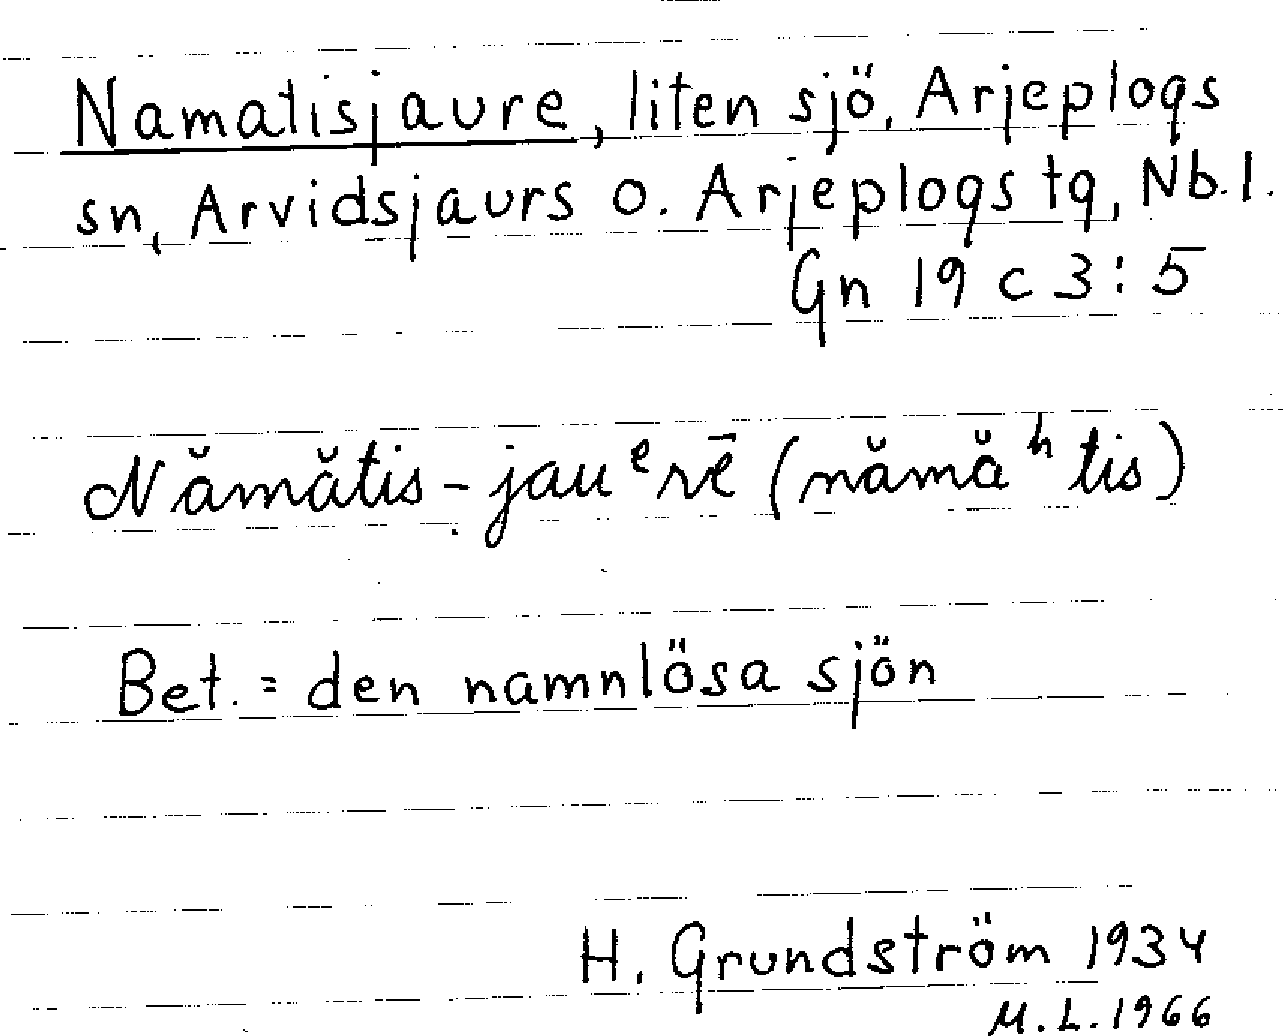 Namatisjaure, liten sjö, Arjeplogs
sn, Arvidsjaurs o. Arjeplogs tg, Nb.l.
Gn 19 c 3:5
Nămătis-jauᵉrē (nămăʰtis)
Bet. = den namnlösa sjön
H. Grundström 1934
M.L.1966